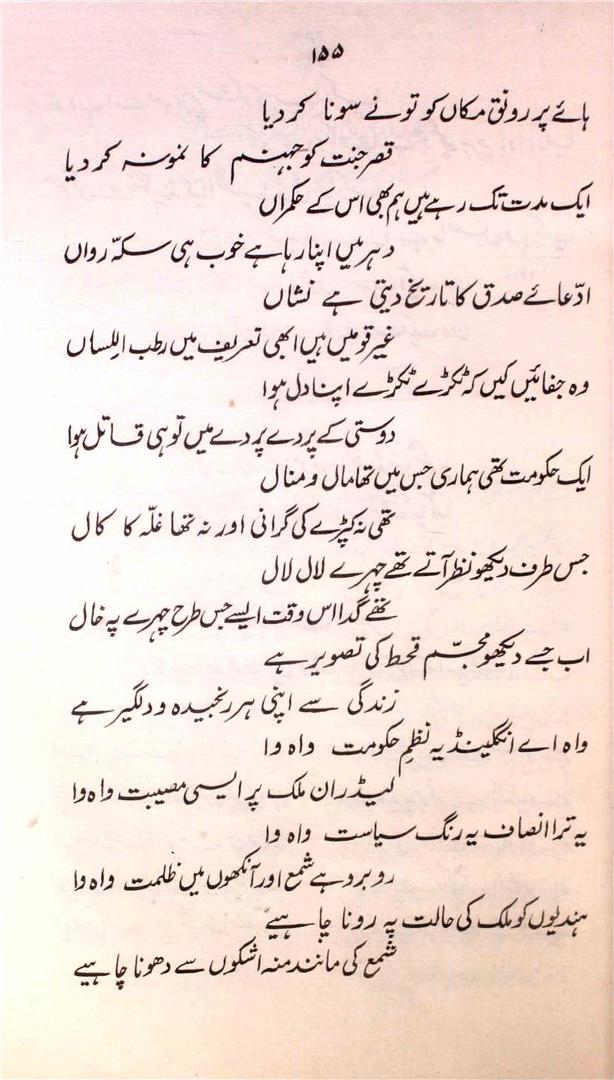 ۱۵۵
ہائے پر رونق مکاں کو تو نے سونا کر دیا
قصرِ جنت کو جہنم کا نمونہ کر دیا
ایک مدت تک رہے ہیں ہم بھی اس کے حکمراں
دہر میں اپنا رہا ہے خوب ہی سکّہ رواں
ادّعائے صدق کا تاریخ دیتی ہے نشاں
غیر قومیں ہیں ابھی تعریف میں رطب اللساں
وہ جفائیں کیں کہ ٹکڑے ٹکڑے اپنا دل ہوا
دوستی کے پردے پردے میں تو ہی قاتل ہوا
ایک حکومت تھی ہماری جس میں تھا مال و منال
تھی نہ کپڑے کی گرانی اور نہ تھا غلّہ کا کال
جس طرف دیکھو نظر آتے تھے چہرے لال لال
تھے گدا اس وقت ایسے جس طرح چہرے پہ خال
اب جسے دیکھو مجسّم قحط کی تصویر ہے
زندگی سے اپنی ہر رنجیدہ و دلگیر ہے
واہ اے انگلینڈ یہ نظمِ حکومت واہ وا
لیڈران ملک پر ایسی مصیبت واہ وا
یہ ترا انصاف یہ رنگ سیاست واہ وا
روبرو ہے شمع اور آنکھوں میں ظلمت واہ وا
ہندیوں کو ملک کی حالت پہ رونا چاہیے
شمع کی مانند منہ اشکوں سے دھونا چاہیے